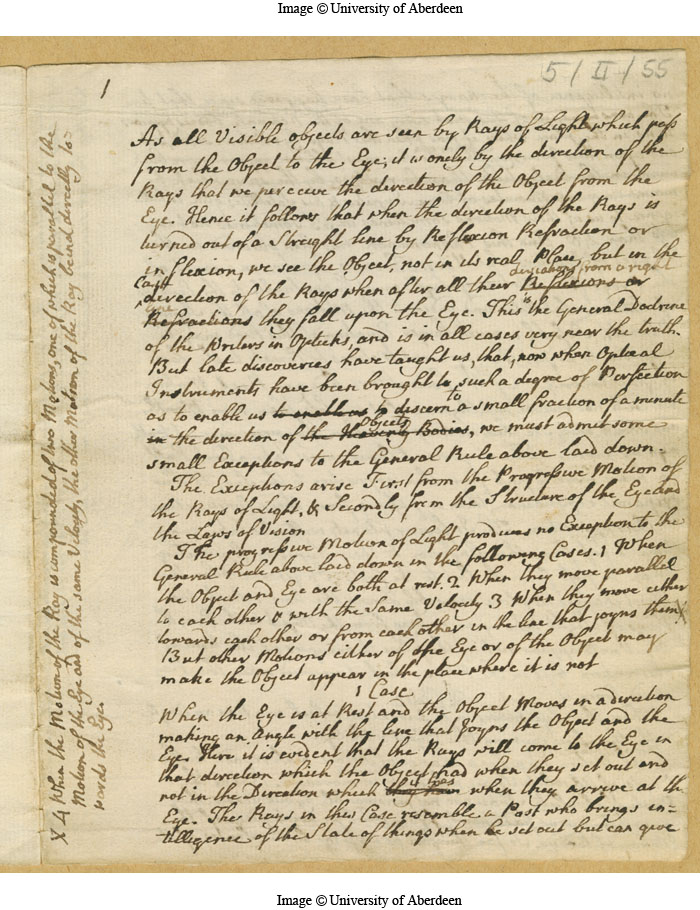 Image © University of Aberdeen
5/II/55
1
As all Visible objects are seen by Rays of Light which pass
from the Object to the Eye; it is onely by the direction of the
Rays that we perceive the direction of the Object from the
Eye. Hence it follows that when the direction of the Rays is
turned out of a Streight line by Reflexion Refraction or
inflexion, we see the Object, not in its real Place, but in the
last
deviations from a right
direction of the Rays when after all their Reflexions or
line
Refractions they fall upon the Eye. This is the General Doctrine
of the Writers in Opticks, and is in all cases very near the truth.
But late discoveries have taught us, that, now when Optical
Instruments have been brought to such a degree of Perfection
as to enable us to enable us to discern to a small fraction of a minute
Objects
in the direction of the Heavenly Bodies, we must admit some
small Exceptions to the General Rule above laid down.
The Exceptions arise First from the Progressive Motion of
the Rays of Light, & Secondly from the Structure of the Eye and
the Laws of Vision
The progressive Motion of Light produces no Exception to the
General Rule above laid down in the following Cases. 1 When
the Object and Eye are both at rest. 2 When they move parallel
to each other & with the Same Velocity 3 When they move either
towards each other or from each other in the line that joyns them X
But other Motions either of the Eye or of the Object may
make the Object appear in the place where it is not
1 Case
When the Eye is at Rest and the Object Moves in a direction
making an Angle with the line that Joyns the Object and the
Eye. Here it is evident that the Rays will come to the Eye in
that direction which the Object had when they set out and
not in the Direction which when they arrive at the
Eye. The Rays in this Case resemble a Post who brings in-
telligence of the State of things when he set out but can give
X 4 When the Motion of the Ray is compounded of two Motions, one of which is parallel to the
Motion of the Eye and of the same Velocity, the other Motion of the Ray being directly to-
wards the Eye
Image © University of Aberdeen